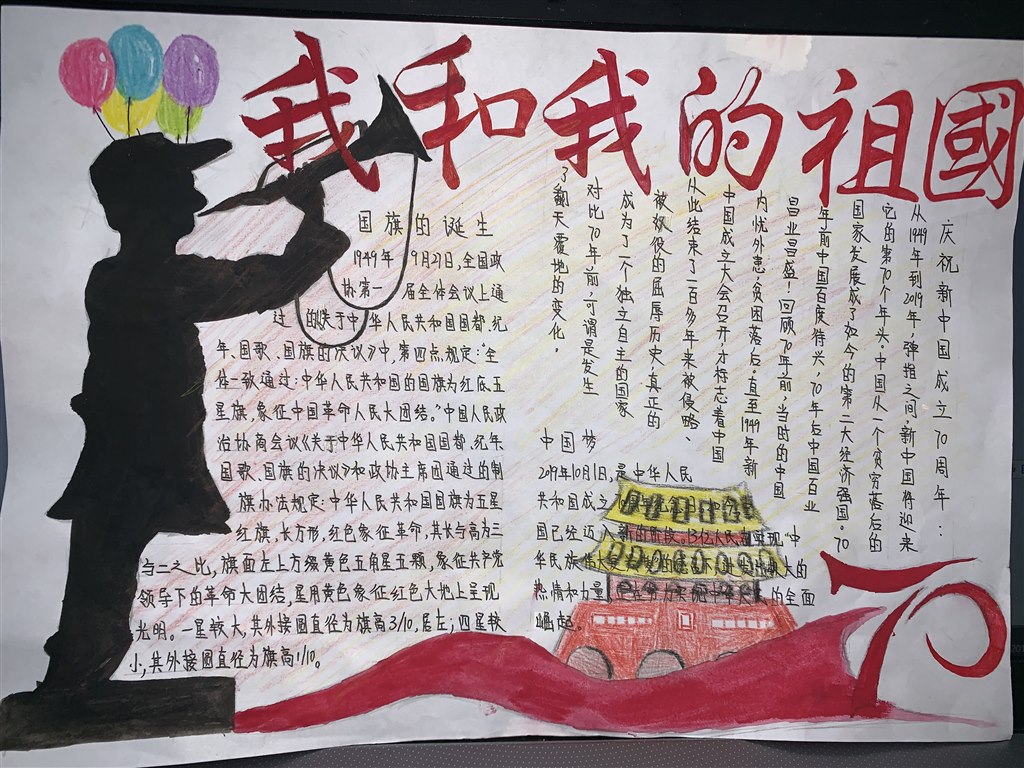 我和我的祖國
国旗的诞生
1949年9月27日,全国政
协第一届全体会议上通
过的《关于中华人民共和国国都、纪
年、国歌、国旗的决议》中,第四点规定:"全
体一致通过:中华人民共和国的国旗为红底五
星旗,象征中国革命人民大团结。"中国人民政
治协商会议《关于中华人民共和国国都、纪年
国歌、国旗的决议》和政协主席团通过的制
旗办法规定:中华人民共和国国旗为五星
红旗,长方形,红色象征革命,其长与高为三
与二之比,旗面左上方缀黄色五角星五颗,象征共产党
领导下的革命大团结,星用黄色象征红色大地上呈现
光明。一星较大,其外接圆直径为旗高3/10,居左;四星较
小,其外接圆直径为旗高1/10。
庆祝新中国成立70周年:
从1949年到2019年,弹指之间,新中国将迎来
它的第70个年头。中国从一个贫穷落后的
国家发展成了如今的第二大经济强国。70
年前中国百废待兴,70年后中国百业
昌业昌盛!回顾70年前,当时的中国
内忧外患,贫困落后。直至1949年新
中国成立大会召开,才标志着中国
从此结束了一百多年来被侵略、
被奴役的屈辱历史,真正的
成为了一个独立自主的国家
对比70年前,可谓是发生
了翻天覆地的变化。
中国梦
2019年10月1日,是中华人民
共和国成立
国已经迈入新的阶段,13亿人民,在实现"中
华民族伟大 大的
热情和力量, 的全面
崛起。
70